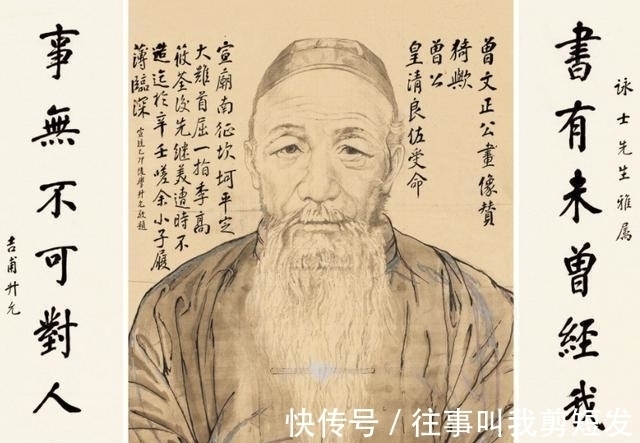 詠士先生雅屬
書有未曾經我
曾文正公畫像贊
猗歟
曾公
皇清良佐受命
宣廟南征坎坷平定
大難首屈一指李高
筱荃後先継美遭時不
造迄於辛壬嗟余小子履
薄臨深
宣統乙卯後學升允敬題
事無不可對人
吉甫升允
快传号 / 往事叫我剪短发